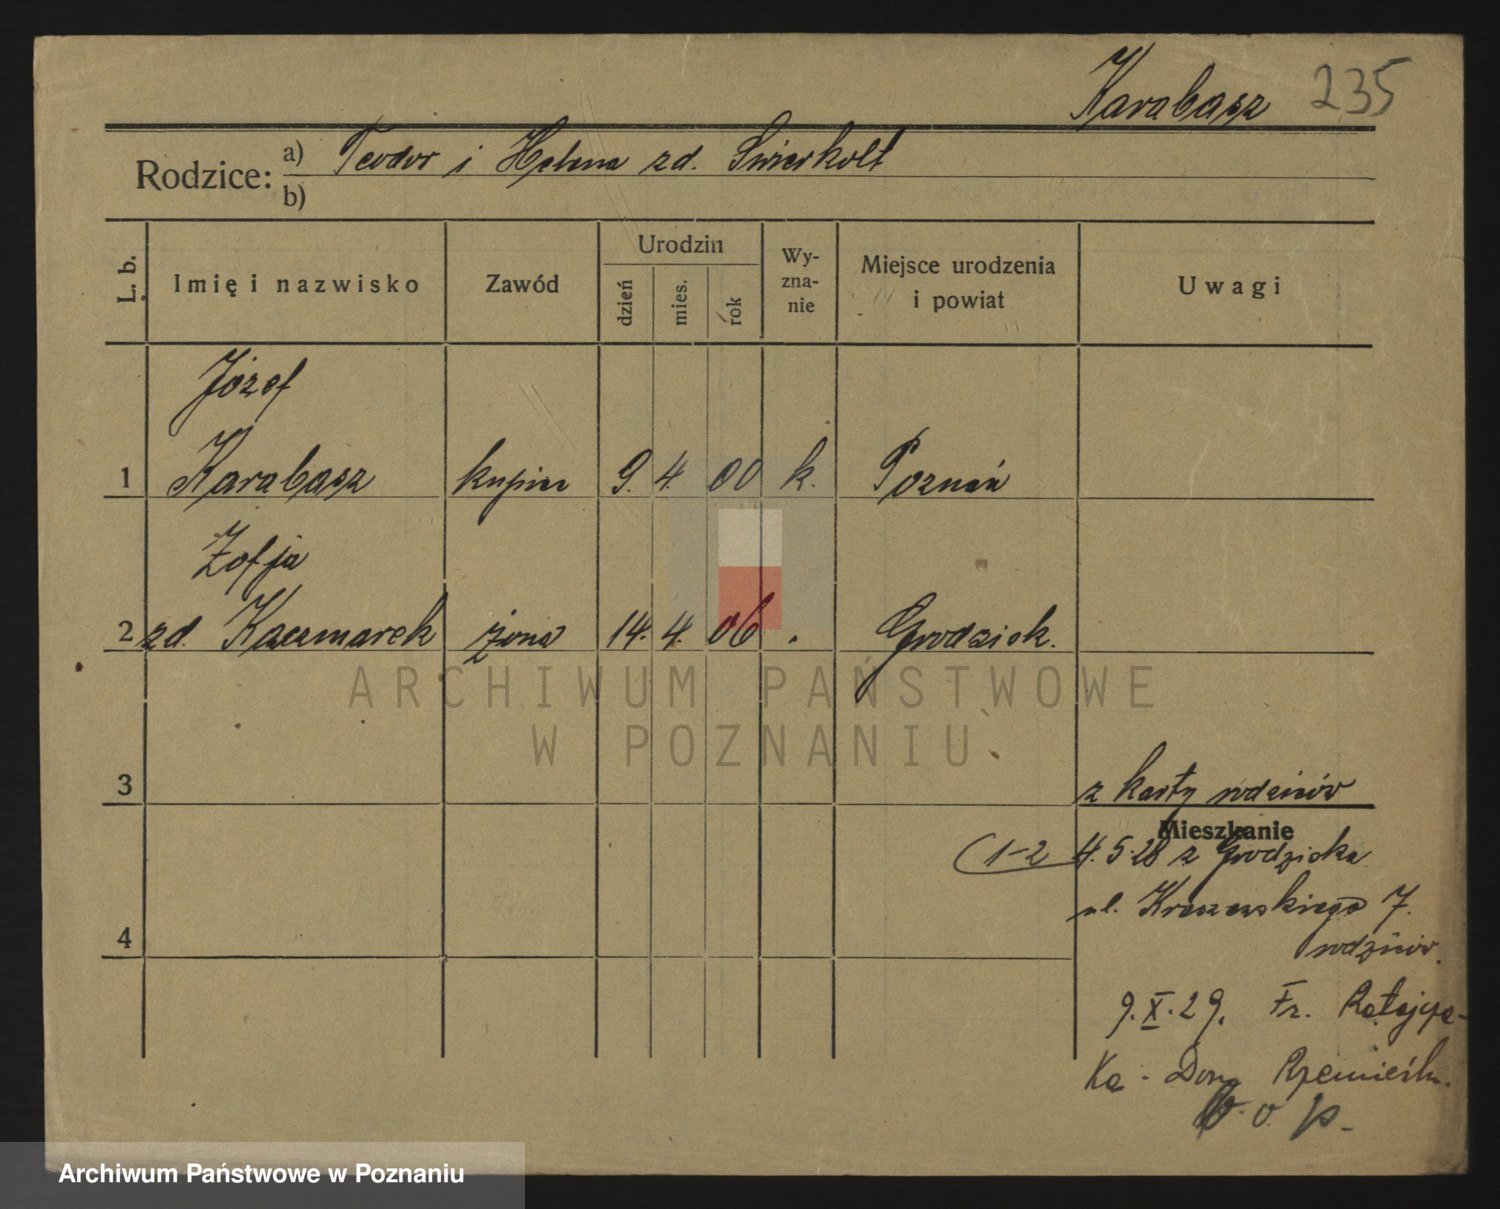 Karabasz 235
Rodzice: a) Teodor i Helena zd. Świerkolt
b)
L. b. Imię i nazwisko Zawód Urodzin dzień mies. rok Wy-zna-nie Miejsce urodzenia i powiat Uwagi
Józef
1 Karabasz kupiec 9. 4. 00 k. Poznań
Zofja
2 zd. Kaczmarek żona 14. 4. 06 . Grodzisk.
ARCHIWUM PAŃSTWOWE
W POZNANIU
3 z karty rodziców
Mieszkanie
(1-2 4.5.28 z Grodziska
ul. Kraszewskiego 7.
rodziców.
4
9.X.29. Fr. Ratajcza-
ka - Dom Rzemieśln.
b. o. p.
Archiwum Państwowe w Poznaniu